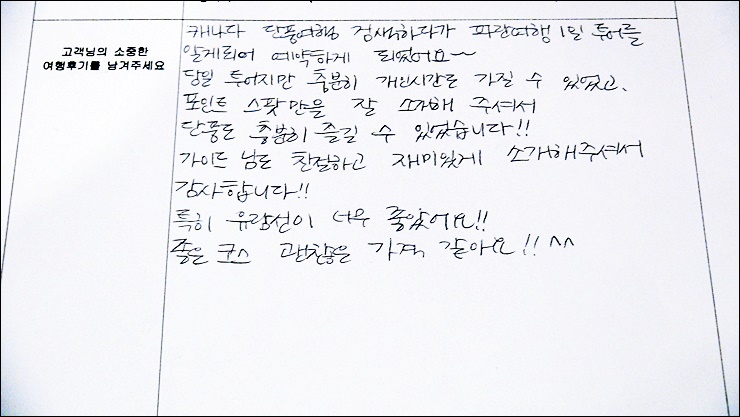 고객님의 소중한
여행후기를 남겨주세요
캐나다 단풍여행 검색하다가 파랑여행 1일 투어를
알게되어 예약하게 되었어요~
당일 투어지만 충분히 개인시간도 가질 수 있었고,
포인트 스팟만을 잘 소개해 주셔서
단풍도 충분히 즐길 수 있었습니다!!
가이드 님도 친절하고 재미있게 소개해주셔서
감사합니다!!
특히 유람선이 너무 좋았어요!!
좋은 코스 괜찮은 가격 같아요!! ^^